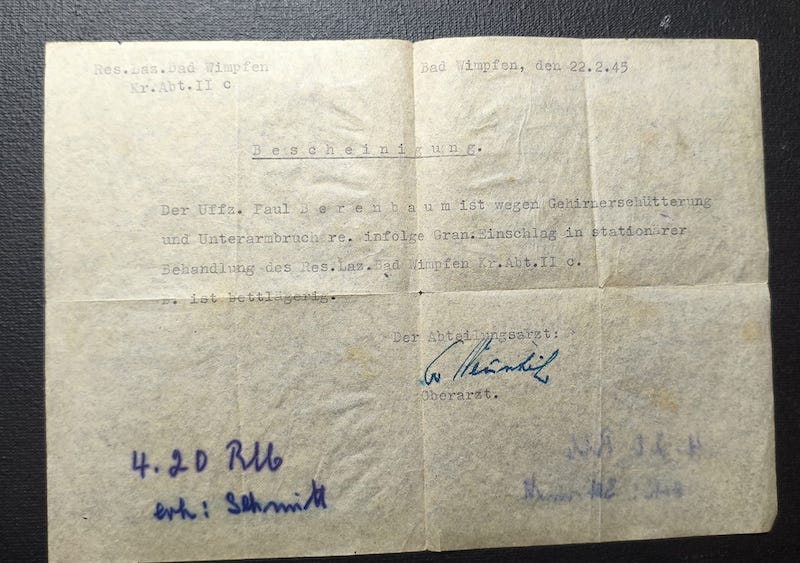 Res.Laz.Bad Wimpfen
Kr.Abt.II c
Bad Wimpfen, den 22.2.45
B e s c h e i n i g u n g.
Der Uffz. Paul B e r e n b a u m ist wegen Gehirnerschütterung
und Unterarmbruch re. infolge Gran.Einschlag in stationärer
Behandlung des Res.Laz.Bad Wimpfen Kr.Abt.II c.
B. ist bettlägerig.
Der Abteilungsarzt:
Oberarzt.
4.20 RM
erh: Schmitt